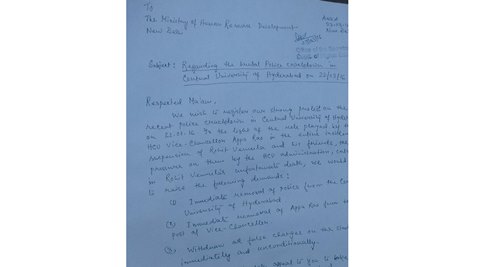 To
The Ministry of Human Resource Development
New Delhi
Subject: Regarding the brutal Police crackdown in
Central University of Hyderabad on 22/03/16
Respected Madam,
We wish to register our strong protest on the
recent police crackdown in Central University of Hyder
on 22.03.16. In the light of the role played by the
HCU Vice-Chancellor Appa Rao in the entire incident
suspension of Rohit Vemula and his friends, the
pressure on them by the HCU administration,
in Rohit Vemula's unfortunate death, we would
to raise the following demands:
(1) Immediate removal of police from the Cen
University of Hyderabad
(2) Immediate removal of Appa Rao from the
post of Vice-Chancellor.
(3) Withdraw all false charges on the stud
immediately and unconditionally.
appeal to you to